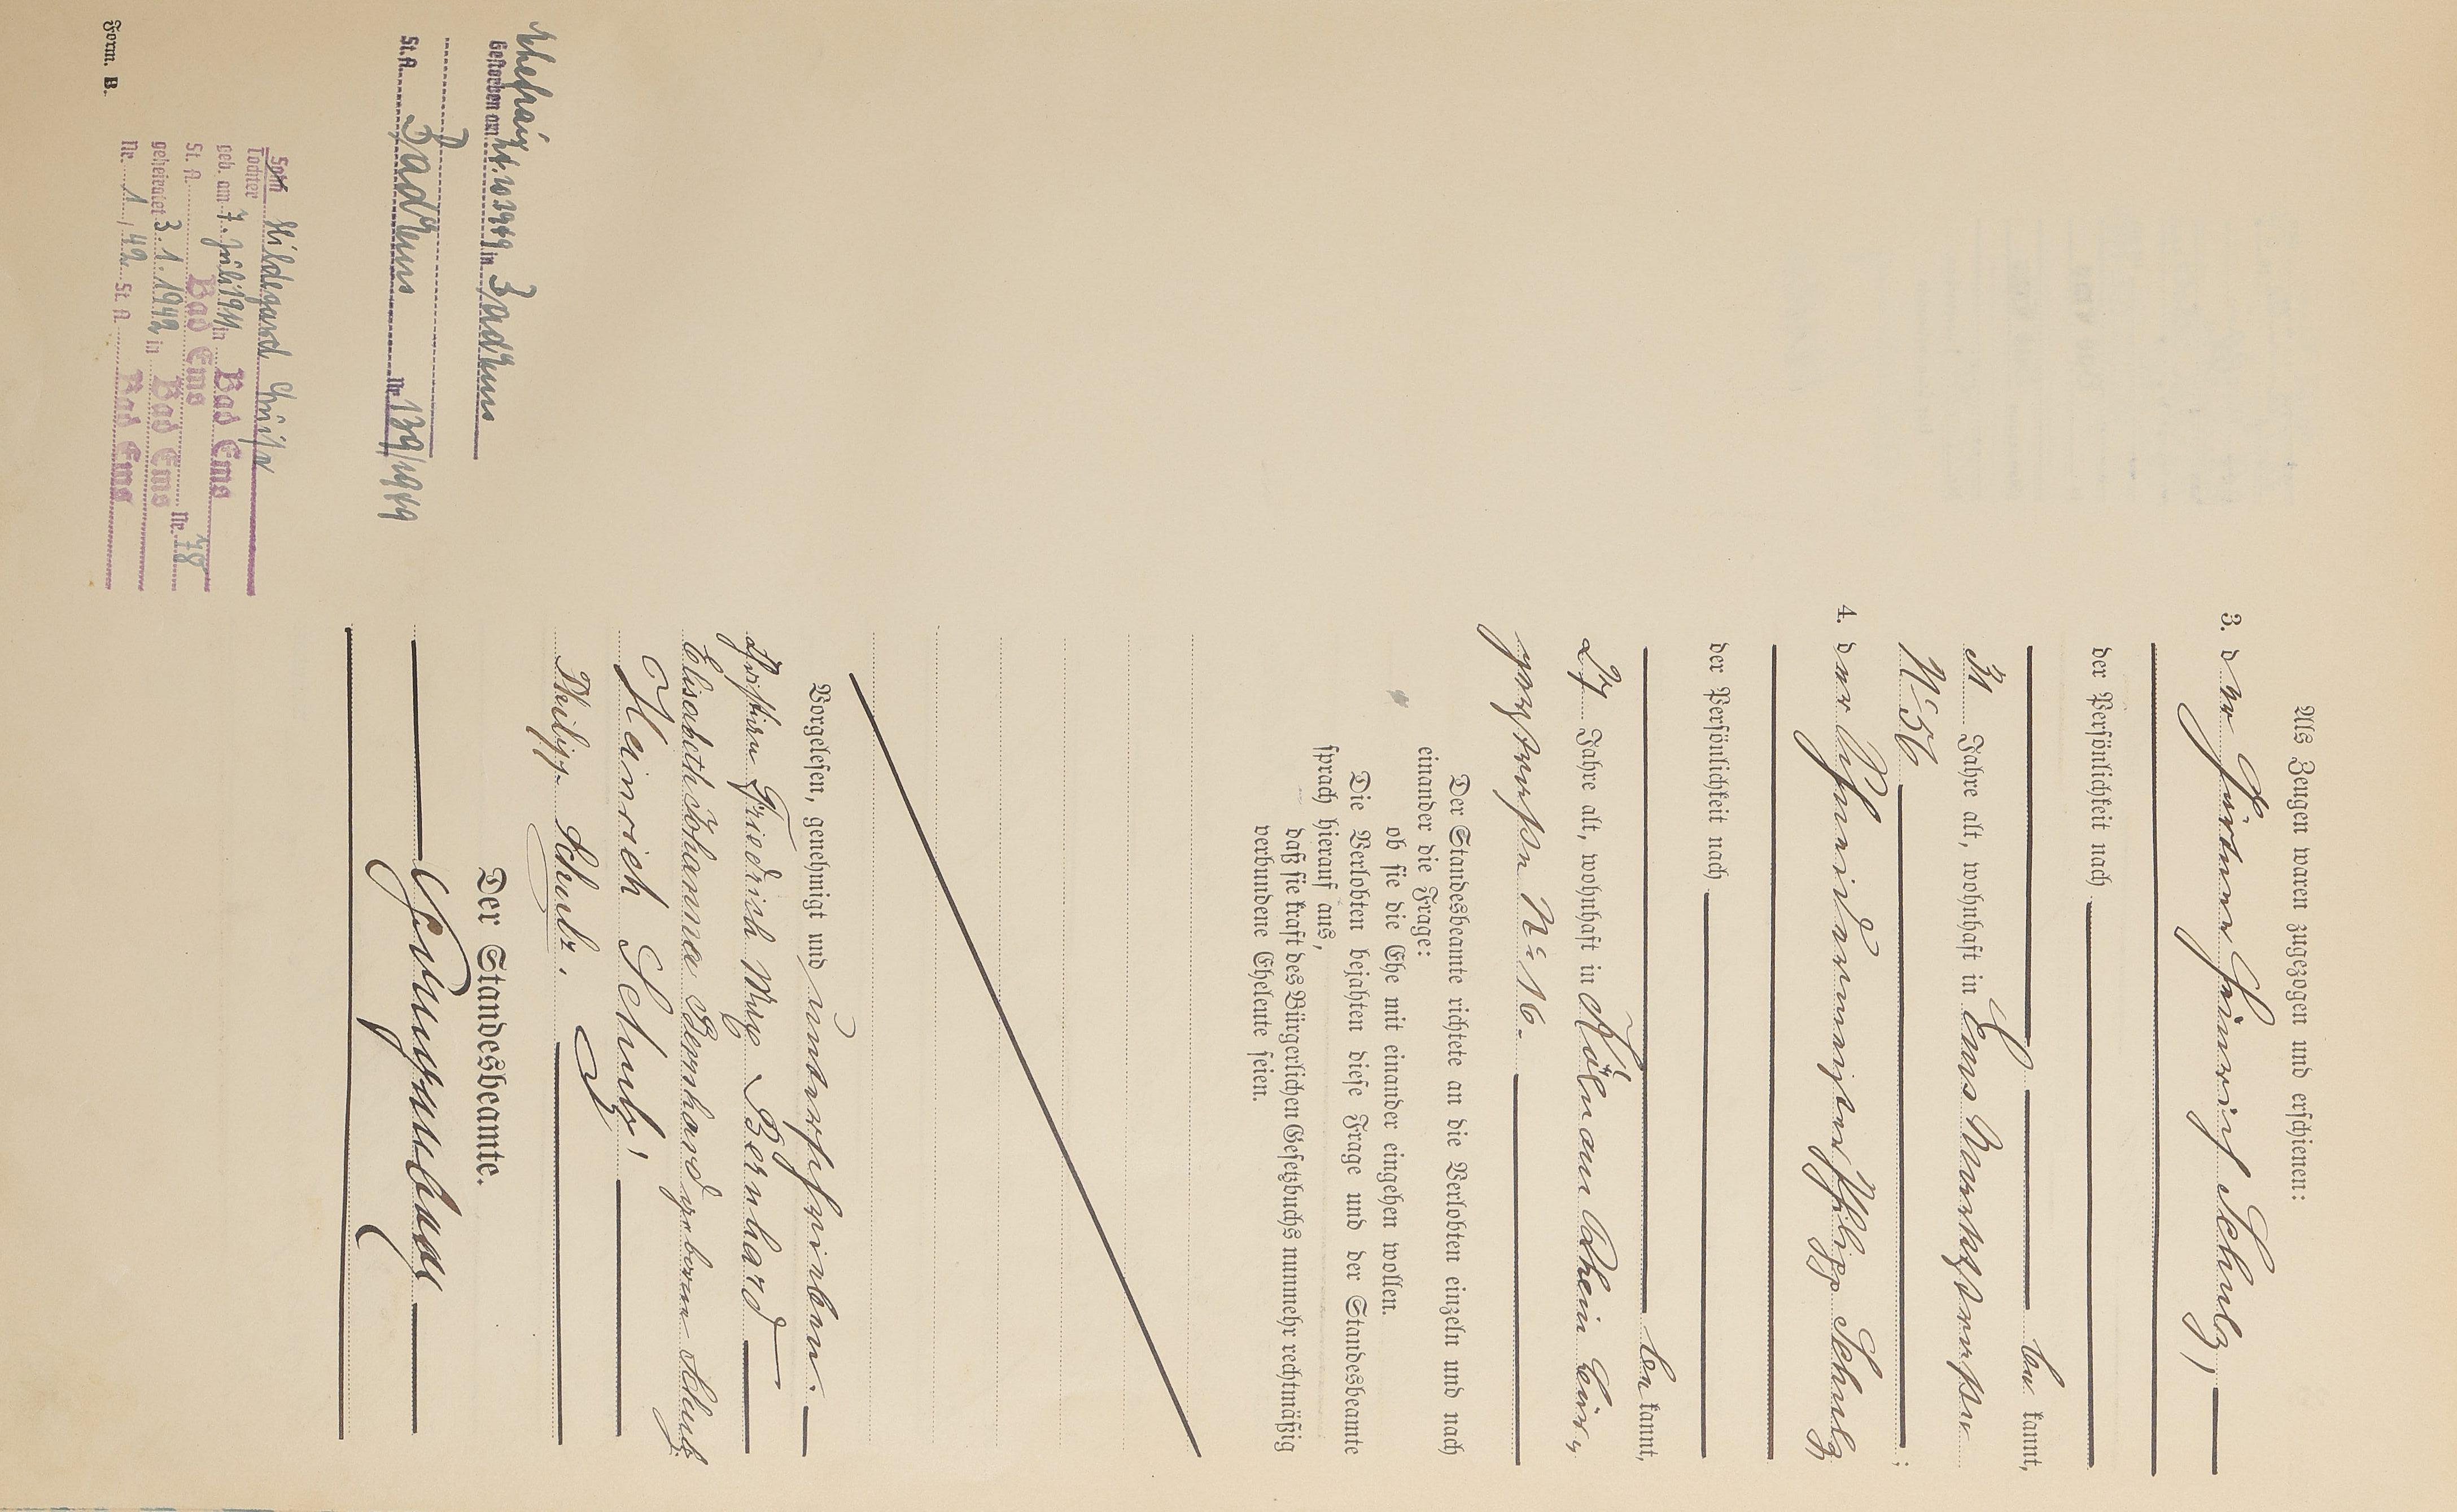 Als Zeugen waren zugezogen und erschienen:
3. der Gärtner Heinrich Schulz,
der Persönlichkeit nach
be kannt,
31 Jahre alt, wohnhaft in Ems
No 56 ;
4. der Schneidermeister Philipp Schulz
der Persönlichkeit nach
be kannt,
27 Jahre alt, wohnhaft in Köln am Rhein
No 16.
Der Standesbeamte richtete an die Verlobten einzeln und nach
einander die Frage:
ob sie die Ehe mit einander eingehen wollen.
Die Verlobten bejahten diese Frage und der Standesbeamte
sprach hierauf aus,
daß sie kraft des Bürgerlichen Gesetzbuchs nunmehr rechtmäßig
verbundene Eheleute seien.
Vorgelesen, genehmigt und unterschrieben.
Friedrich Bernhard
Elisabeth Johanna Bernhard geborene Schulz
Heinrich Schulz
Philipp Schulz.
Der Standesbeamte.
Ehefrau
Gestorben am in Bad Ems
St.A. Bad Ems Nr. 139/1949
Sohn
Tochter Hildegard
geb. am 7. Juli 1911 in Bad Ems
St. A. Bad Ems Nr. 78
geheiratet 3. 1. 1942 in Bad Ems
Nr. 1/42 St. A. Bad Ems
Form. B.